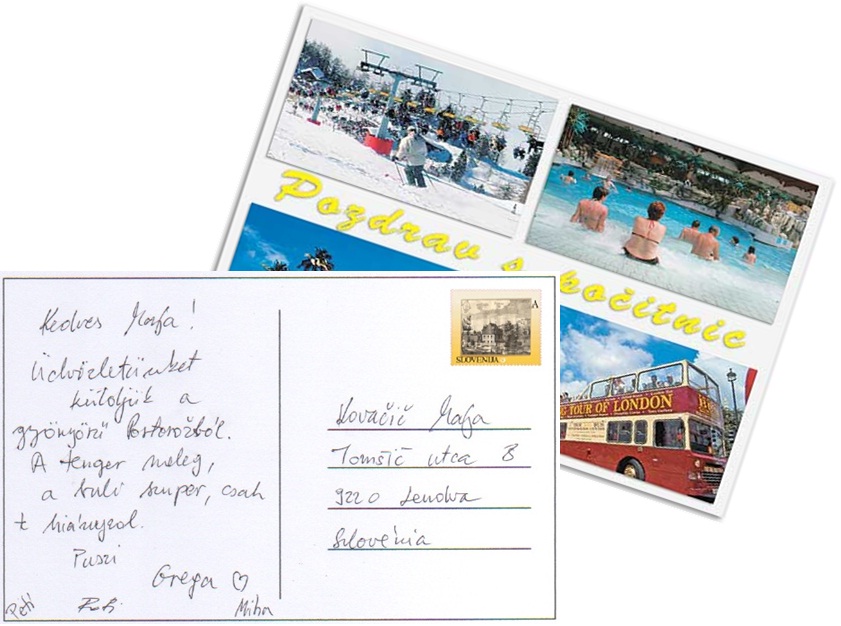 Pozdrav s počitnic
G TOUR OF LONDON
Kedves Maja !
Üdvözletünket
küldjük a
gyönyörű Portorožból.
A tenger meleg,
a buli szuper, csak
te hiányzol.
Puszi
Grega ♡
Peti Miha
A
SLOVENIJA
Kovačič Maja
Tomšič utca 8
9220 Lendva
Slovénia